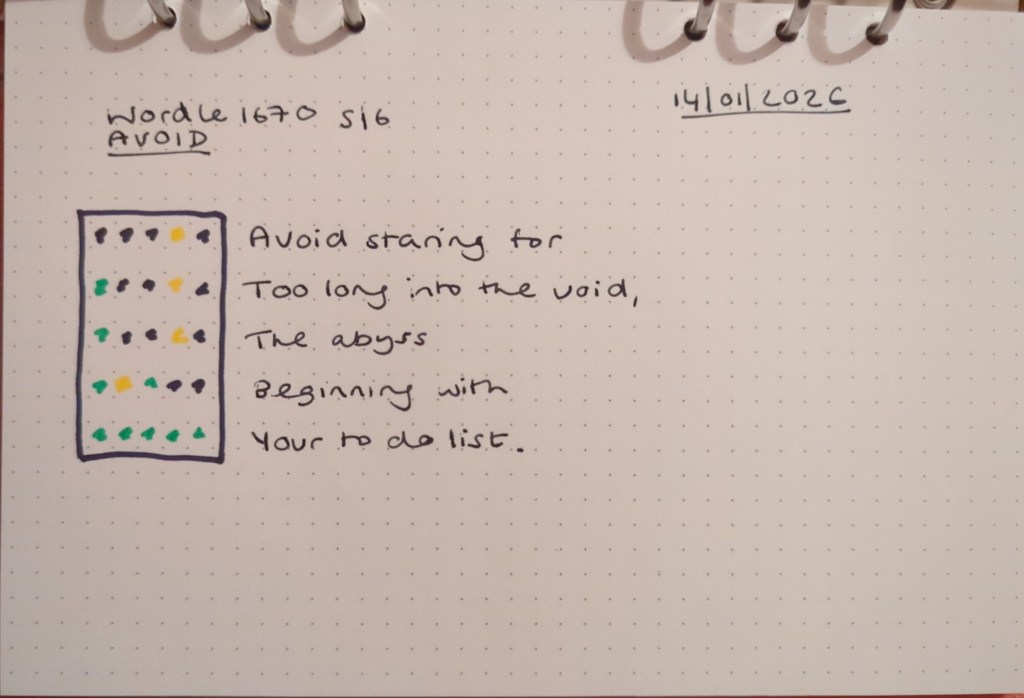 Wordle 1670 5/6
14/01/2026
AVOID
Avoid staring for
Too long into the void,
The abyss
Beginning with
Your to do list.